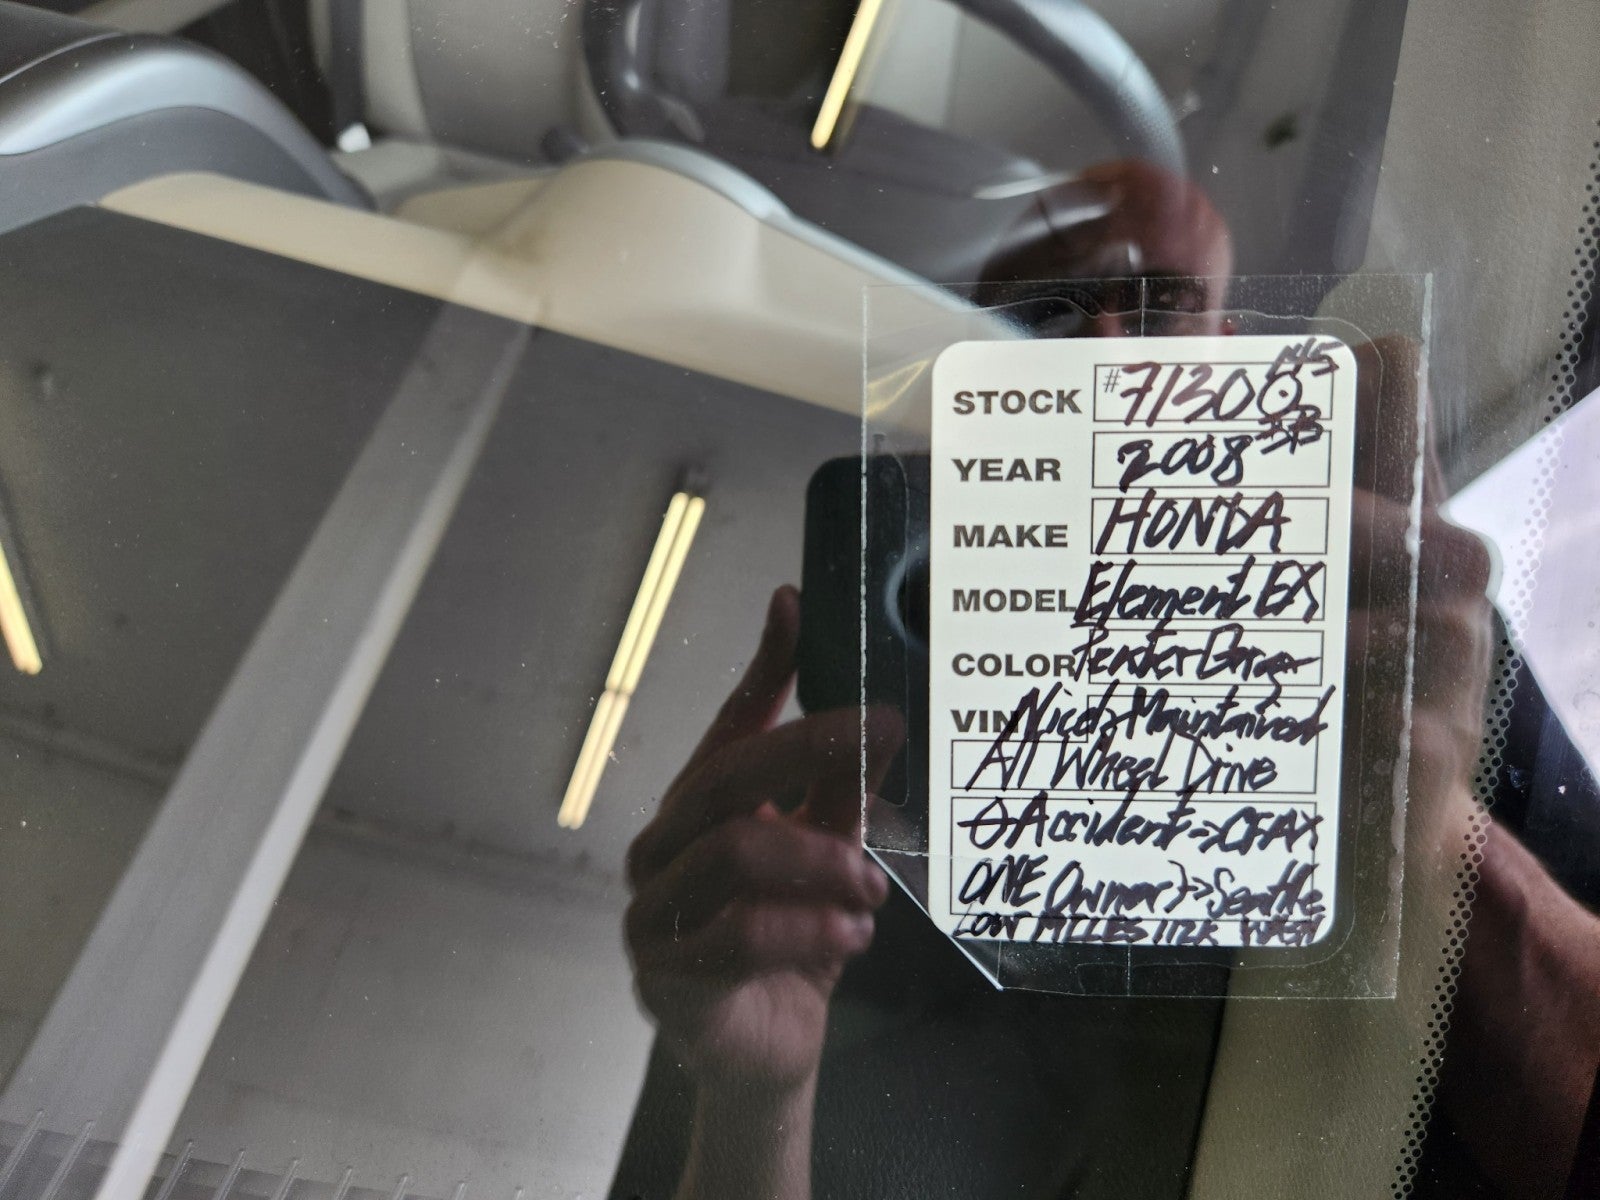 STOCK #71300 145
YEAR 2008 BB
MAKE HONDA
MODEL Element EX
COLOR Pewter
VIN Nicely Maintained
All Wheel Drive
0 Accident → CFAX
ONE Owner → Seattle
LOW MILES 112K WASH